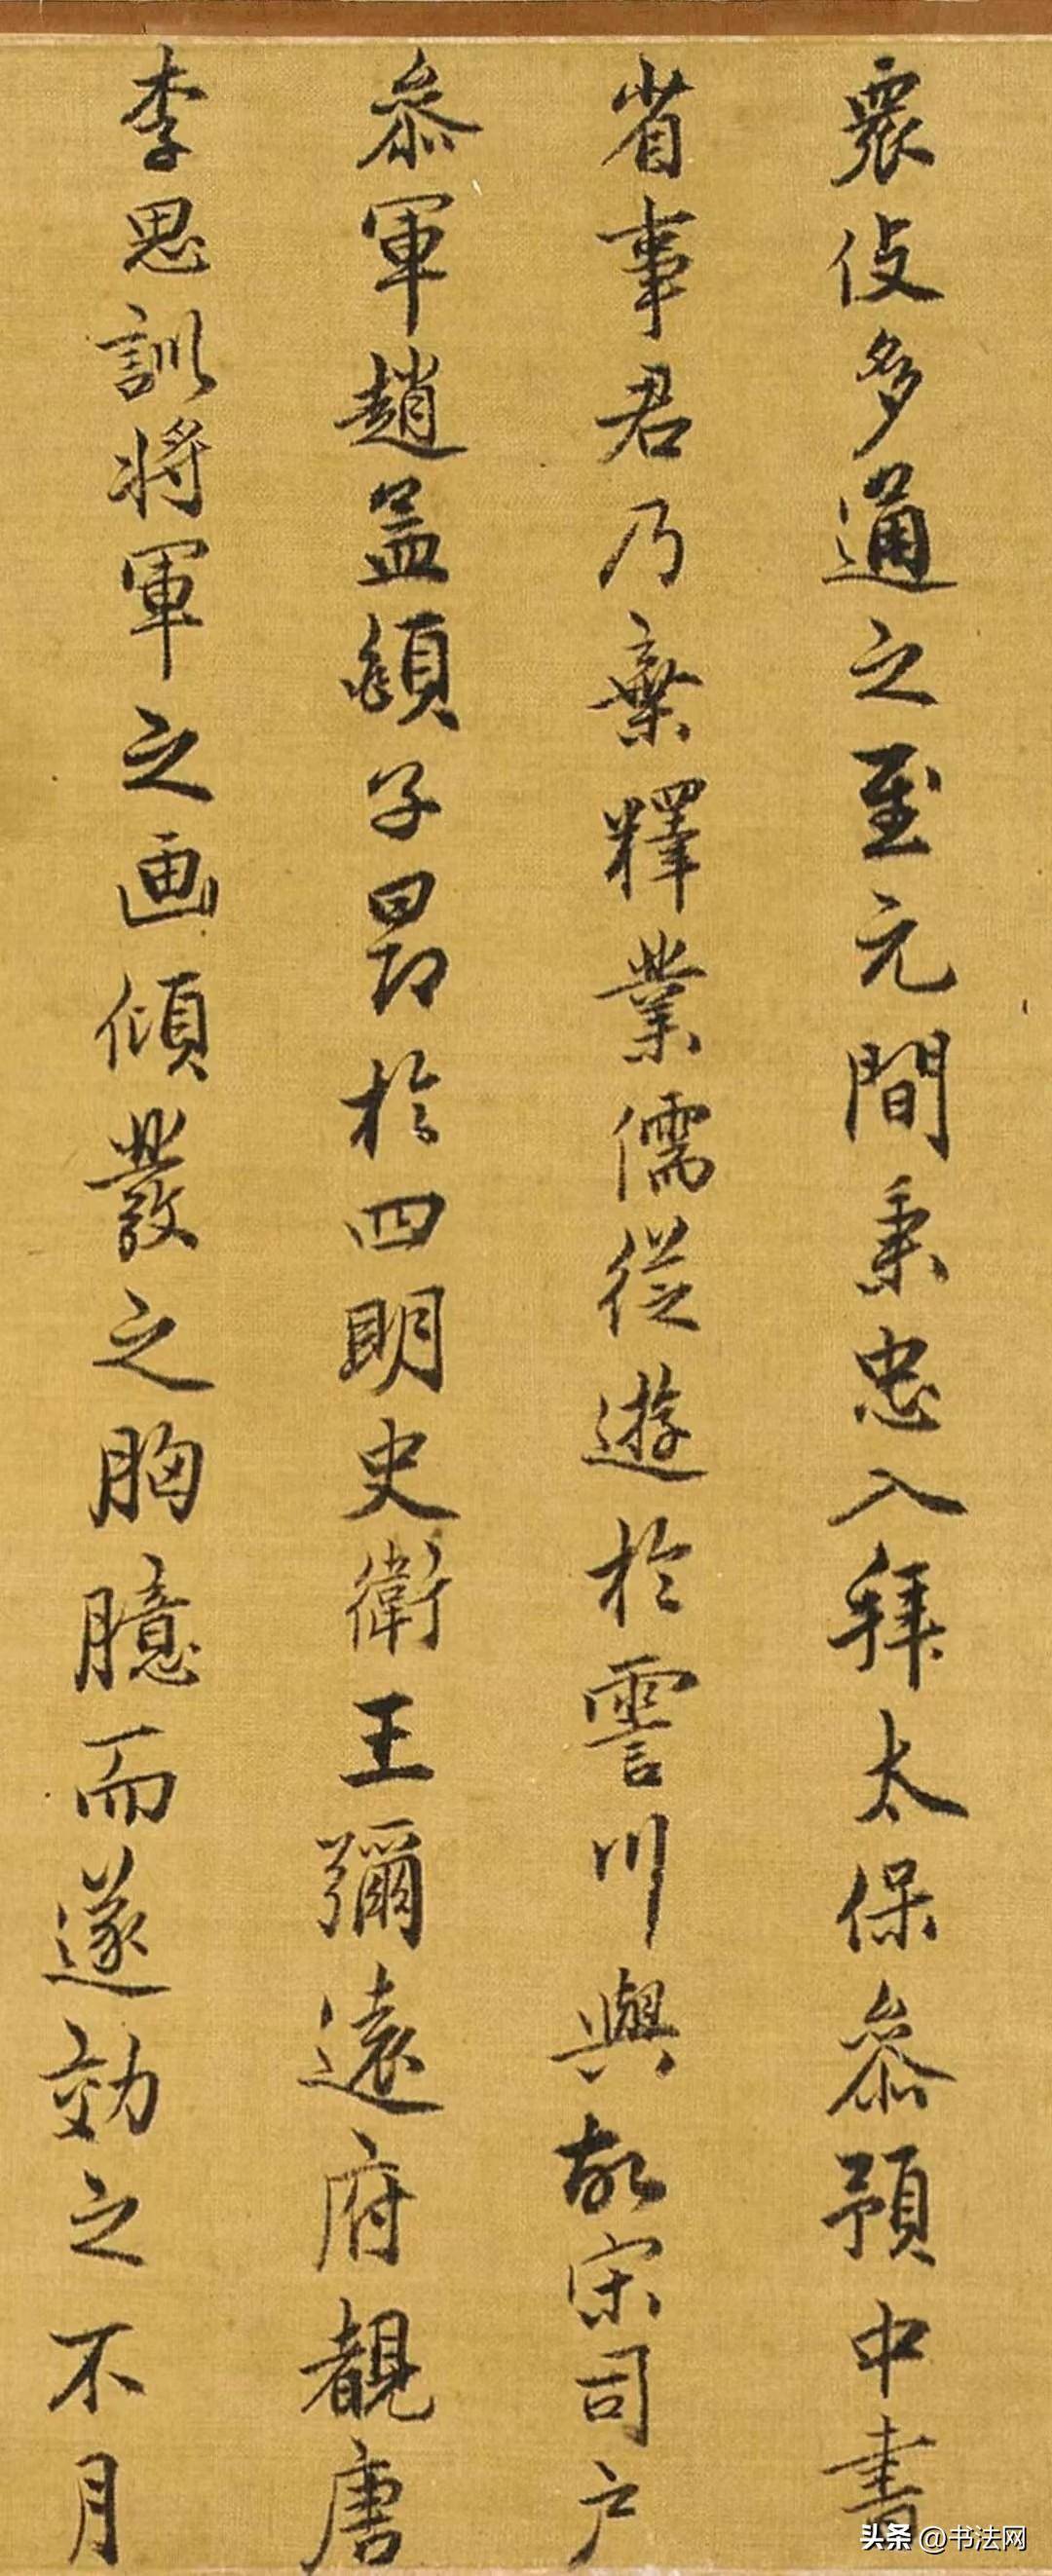 衆伎多通之至元間秉忠入拜太保叅預中書
省事君乃棄釋業儒從遊於霅川與故宋司户
叅軍趙孟頫子昂於四明史衛王彌遠府覩唐
李思訓将軍之画傾羨之胸臆而遂効之不月
头条 @书法网